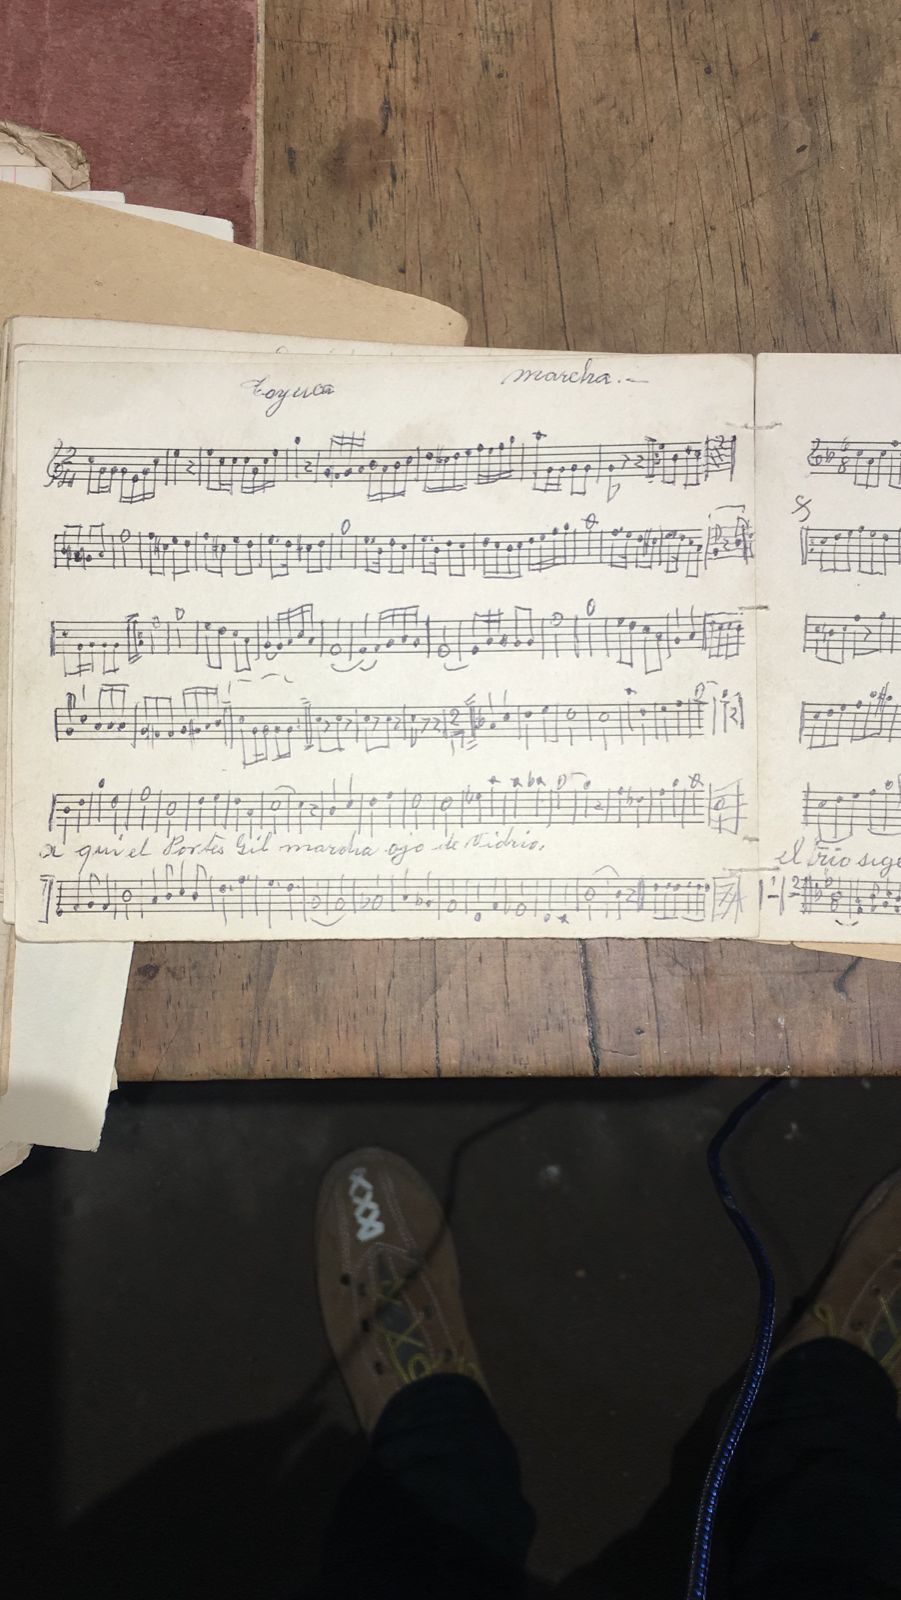 Coyuca marcha.-
a qui el Portes Gil marcha ojo de Vidrio.
el rio sige